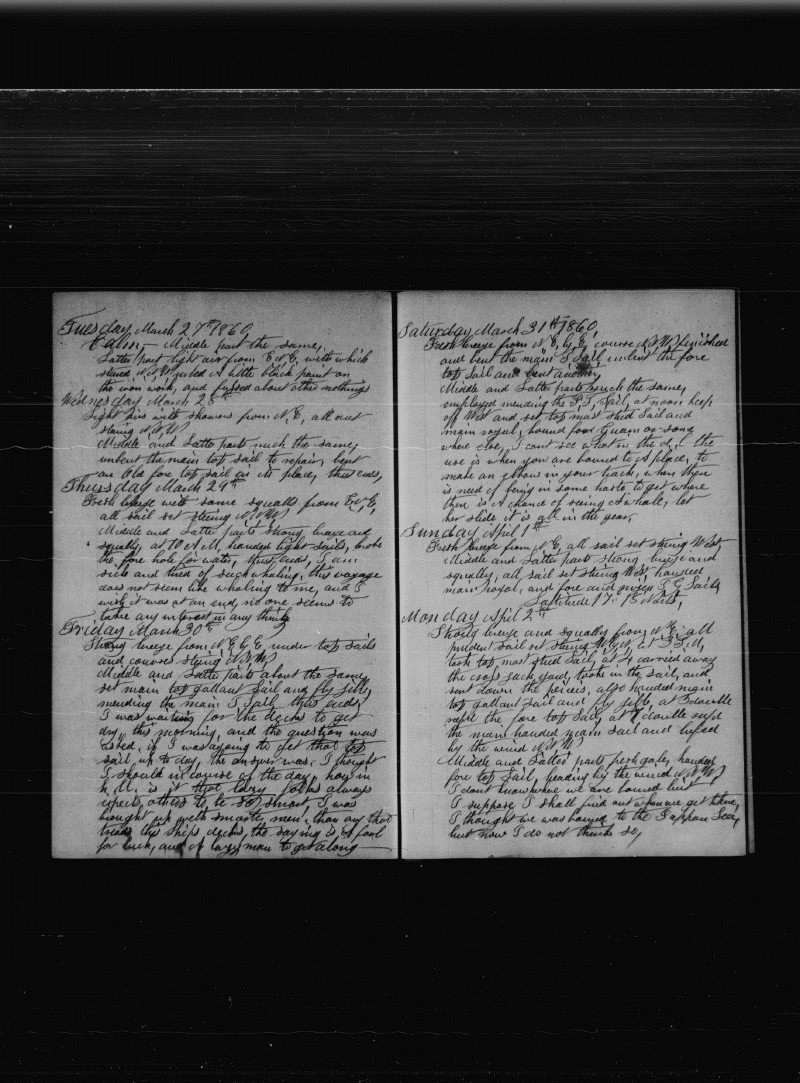 Tuesday March 27th 1860,
Calm, Middle part the same,
Latter part light air from E N E, with which
stered N N W, rubed A little black paint on
the iron work, and fussed about other nothings
Wednesday March 28th
Light airs with showers from N, E, all out
stering N N W
Middle and Latter parts much the same,
unbent the main top sail to repair, bent
an Old fore top sail in its place, thus ends,
Thursday March 29th
Fresh breeze with some squalls from E N E,
all sail set stering N N W
Middle and Latter parts strong breeze and
squally, at 10 A M, handed light sails, broke
the fore hole for water, thus ends, I am
sick and tired of such whaling, this voyage
does not seem like whaling to me, and I
wish it was at an end, no one seems to
take any interest in any thing
Friday March 30th
Strong breeze from N E by E under top sails
and courses stering N N W
Middle and Latter parts about the same,
set main top gallant sail and fly jibb,
mending the main T Sail, thus ends,
I was waiting for the decks to get
dry, this morning, and the question was
asked, if I was agoing to get that top
sail up to day, the answer was, I thought
I should in course of the day, how in
h, ll, is it that lazy folks always
expects others to be so smart, I was
brought up with smarter men, than any that
treads this ships decks, the saying is A fool
for luck, and A lazy man to get along
Saturday March 31st 1860,
Fresh breeze from N, E, by E, course N N W, finished
and bent the main T Sail, unbent the fore
top Sail and bent another,
Middle and Latter parts much the same,
employed mending the F T, Sail, at noon keep
off West and set top mast stud Sail and
main royal, bound for Guam or some
where else, I cant see what in the d, l the
use is when you are bound to A place, to
make an elbow in your track, when there
is need of being in some haste to get where
there is A chance of seeing A whale, let
her slide it is all in the year
Sunday April 1st
Fresh breeze from N, E, all sail set stering West,
Middle and Latter part strong breeze and
squally, all sail set stering West, handed
main royal, and fore and mizen T, G Sails,
Latitude 17.. 15 North,
Monday April 2nd
Strong breeze and squally from N E, all
prudent sail set stering W by N, at 3 P, M,
took top mast stud Sail, at 4 carried away
the cross jack yard, took in the sail, and
sent down the peices, also handed main
top gallant sail and fly jibb, at 5 double
reefd the fore top Sail, at 7 double reefd
the main handed main sail and luffed
by the wind N N W
Middle and Latter parts fresh gale, handed
fore top Sail, heading by the wind N N W
I dont know where we are bound but
I suppose I shall find out when we get there,
I thought we was bound to the Jappan Sea,
but now I do not think so,